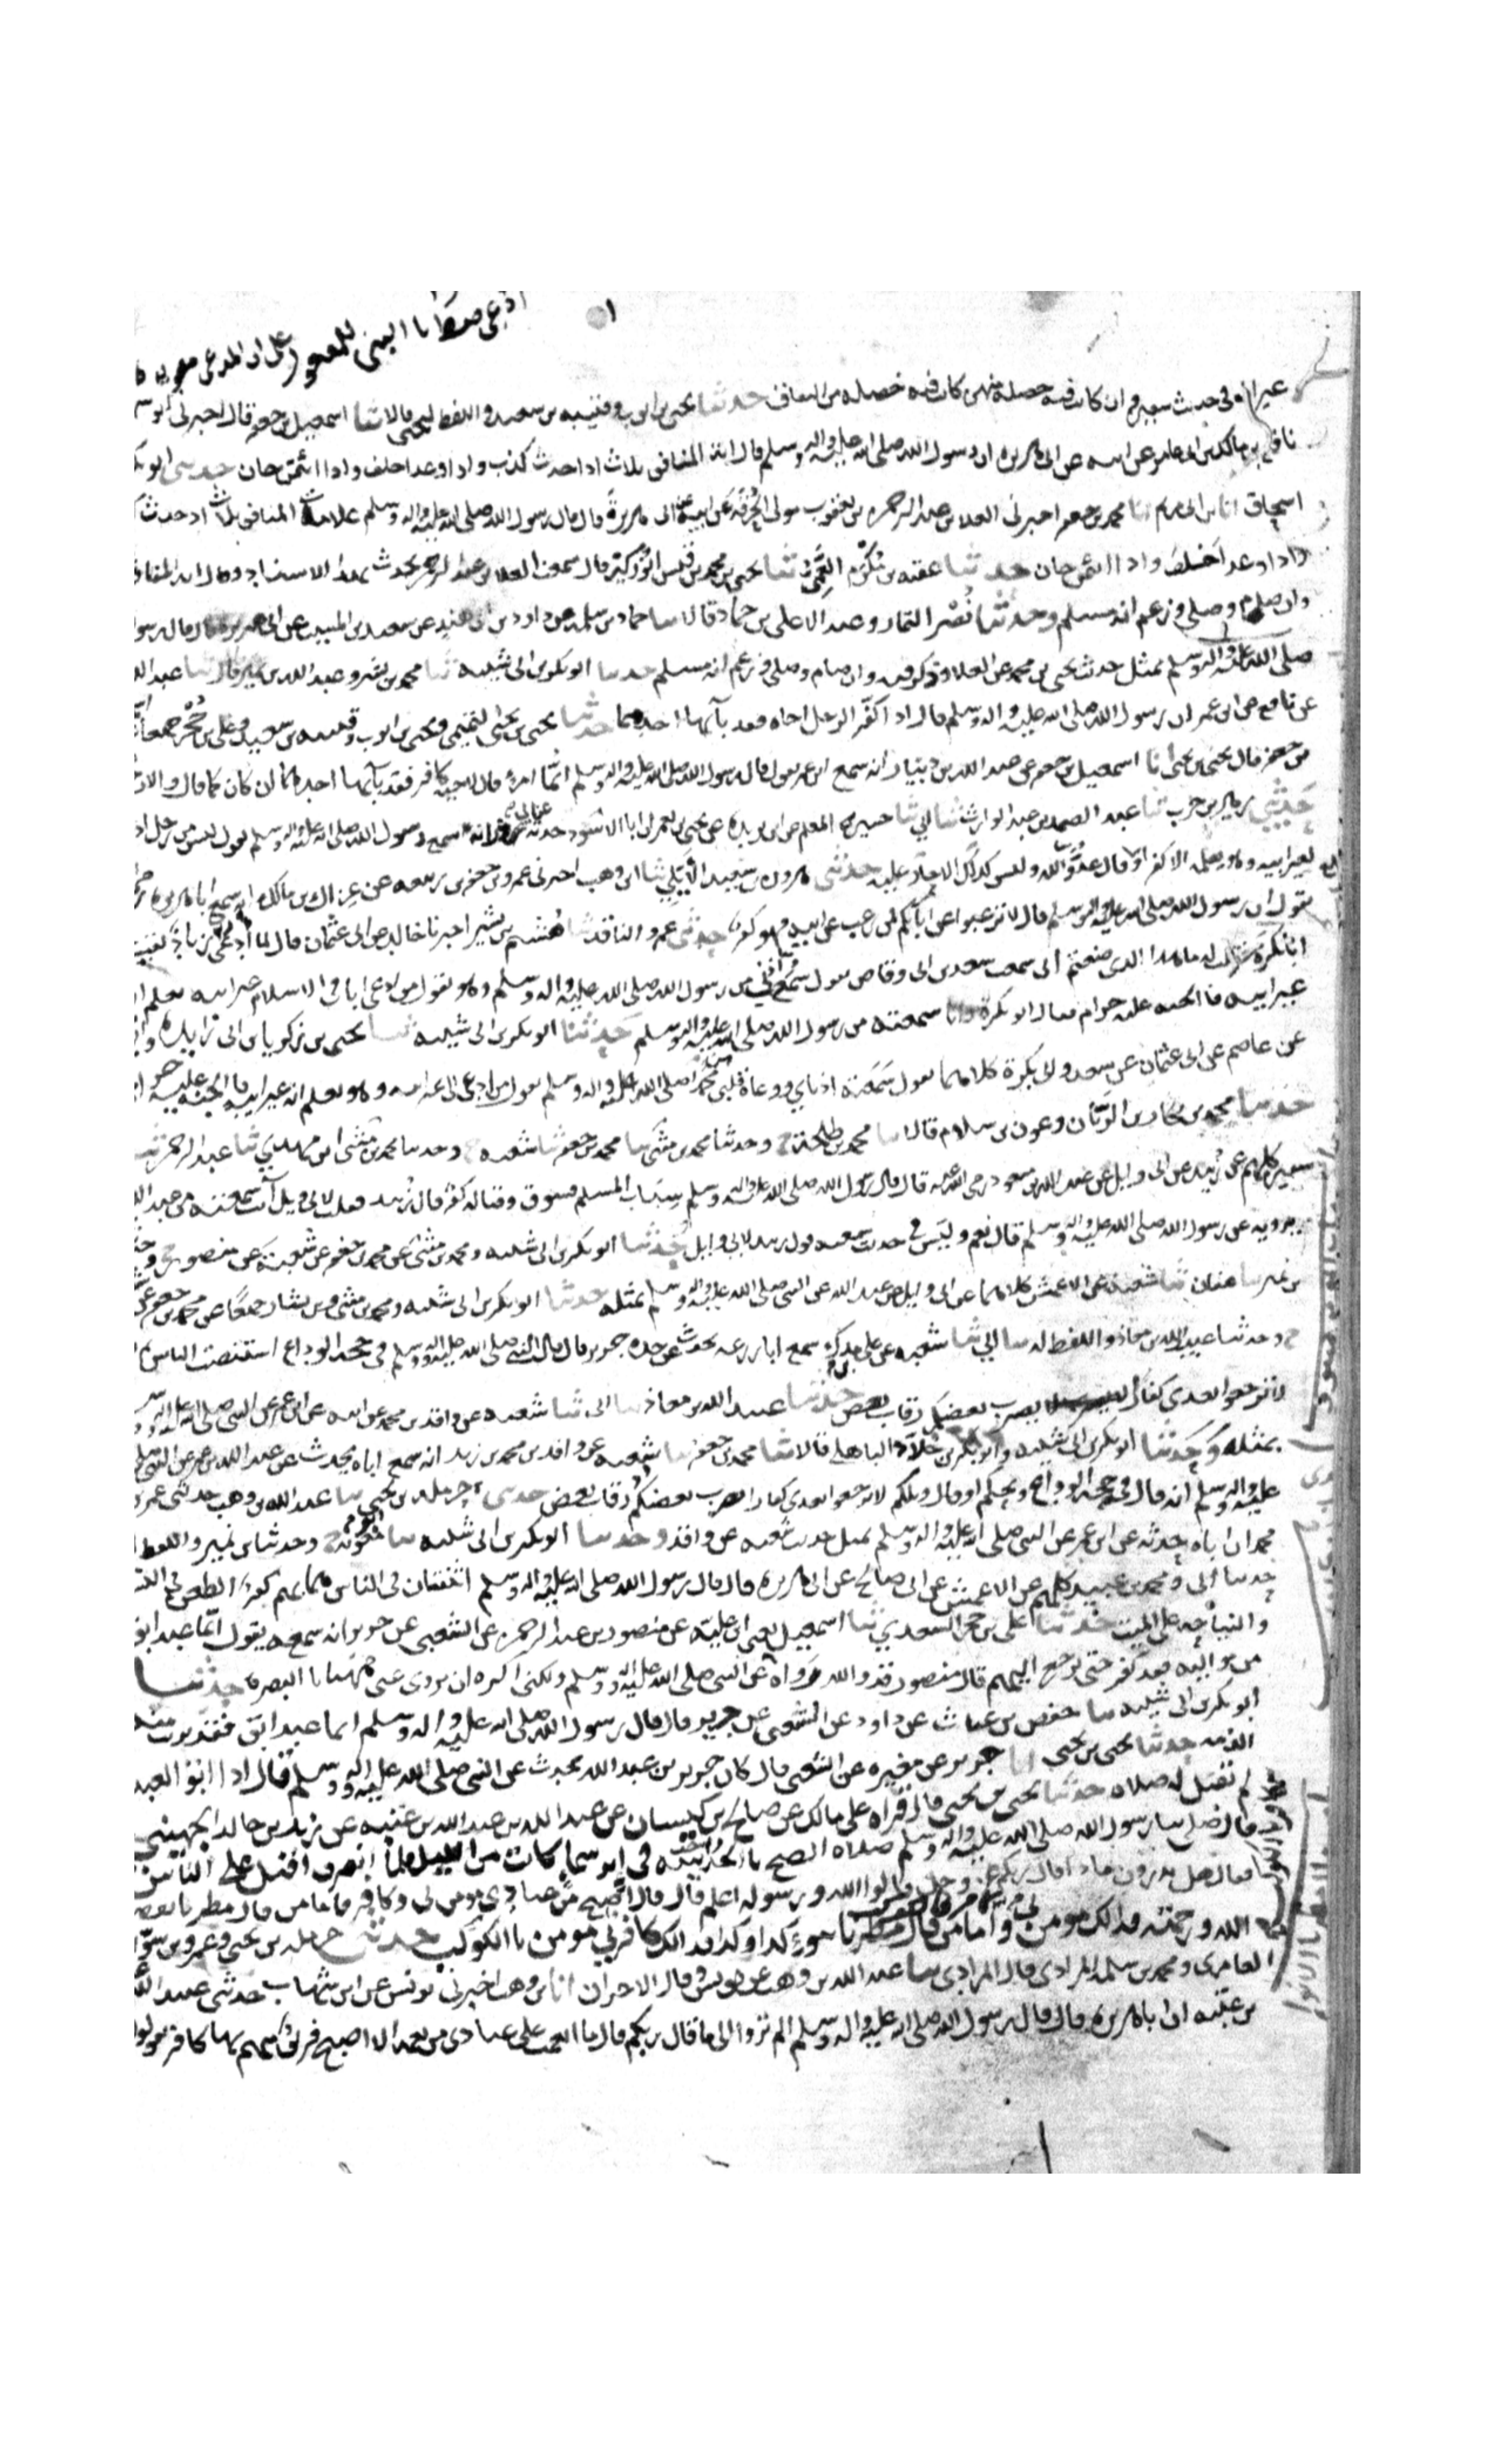 غير ان في حديث سفين وان كانت فيه خصلة منهن كانت فيه خصلة من النفاق حدثنا يحيى بن ايوب وقتيبة بن سعيد واللفظ ليحيى قالا ثنا اسمعيل بن جعفر قال اخبرني ابو سه
نافع بن مالك بن ابي عامر عن ابيه عن ابي هريرة ان رسول الله صلى الله عليه واله وسلم قال اية المنافق ثلاث اذا حدث كذب واذا وعد اخلف واذا ائتمن خان حدثني ابو بك
اسحاق انا ابن ابي مريم انا محمد بن جعفر اخبرني العلا بن عبد الرحمن بن يعقوب مولى الحرقة عن ابيه عن ابي هريرة قال قال رسول الله صلى الله عليه واله وسلم علامات المنافق ثلاث اذ حدث ك
واذا وعد اخلف واذا ائتمن خان حدثنا عقبة بن مكرم العمي ثنا يحيى بن محمد بن قيس ابو زكير قال سمعت العلا بن عبد الرحمن يحدث بهذا الاسناد وقال اية المنافق
وان صام وصلى وزعم انه مسلم وحدثنا ابو نصر التمار وعبد الاعلى بن حماد قالا ثنا حماد بن سلمة عن داود بن ابي هند عن سعيد بن المسيب عن ابي هريرة قال قال رسو
صلى الله عليه واله وسلم بمثل حديث يحيى بن محمد عن العلا وذكر فيه وان صام وصلى وزعم انه مسلم حدثنا ابو بكر بن ابي شيبة ثنا محمد بن بشر وعبد الله بن نمير قالا ثنا عبيد الله
عن نافع عن ابن عمر ان رسول الله صلى الله عليه واله وسلم قال اذا اكفر الرجل اخاه فقد بآ بها احدهما حدثنا يحيى بن يحيى التميمي ويحيى بن ايوب وقتيبة بن سعيد وعلي بن حجر جميعا
بن جعفر قال يحيى بن يحيى انا اسمعيل بن جعفر عن عبد الله بن دينار انه سمع ابن عمر يقول قال رسول الله صلى الله عليه واله وسلم ايما امرئ قال لاخيه كافر فقد بآ بها احدهما ان كان كما قال والا ر
حدثني زهير بن حرب ثنا عبد الصمد بن عبد الوارث ثنا ابي ثنا حسين المعلم عن ابن بريدة عن يحيى بن يعمر ان ابا الاسود حدثه عن ابي ذر انه سمع رسول الله صلى الله عليه واله وسلم يقول ليس من رجل اد
لغير ابيه وهو يعلمه الا كفر او قال عدو الله وليس كذلك الا حار عليه حدثني هرون بن سعيد الايلي ثنا ابن وهب اخبرني عمرو عن جعفر بن ربيعة عن عراك بن مالك انه سمع ابا هريرة
يقول ان رسول الله صلى الله عليه واله وسلم قال لا ترغبوا عن ابآئكم فمن رغب عن ابيه فهو كفر حدثني عمرو الناقد ثنا هشيم بن بشير اخبرنا خالد عن ابي عثمان قال لما ادعي زياد لقيت
ابا بكرة فقلت له ما هذا الذي صنعتم اني سمعت سعد بن ابي وقاص يقول سمع اذني من رسول الله صلى الله عليه واله وسلم وهو يقول من ادعى ابا في الاسلام غير ابيه يعلم ا
غير ابيه فالجنة عليه حرام فقال ابو بكرة وانا سمعته من رسول الله صلى الله عليه واله وسلم حدثنا ابو بكر بن ابي شيبة ثنا يحيى بن زكريا بن ابي زايدة واب
عن عاصم عن ابي عثمان عن سعد وابي بكرة كلاهما يقول سمعته اذناي ووعاه قلبي محمدا صلى الله عليه واله وسلم يقول من ادعى الى غير ابيه وهو يعلم انه غير ابيه فالجنة عليه حر
حدثنا محمد بن بكار بن الريان وعون بن سلام قالا ثنا محمد بن طلحة ح وحدثنا محمد بن مثنى ثنا محمد بن جعفر ثنا شعبة ح وحدثنا محمد بن مثنى ابن مهدي ثنا عبد الرحمن ثنا
سفين كلهم عن زبيد عن ابي وايل عن عبد الله بن مسعود رضي الله عنه قال قال رسول الله صلى الله عليه واله وسلم سباب المسلم فسوق وقتاله كفر قال زبيد فقلت لابي وايل انت سمعته من عبد الله
يرويه عن رسول الله صلى الله عليه واله وسلم قال نعم وليس في حديث شعبة قول زبيد لابي وايل حدثنا ابو بكر بن ابي شيبة ومحمد بن مثنى عن محمد بن جعفر عن شعبة عن منصور ح وحد
بن نمير ثنا عفان ثنا شعبة عن الاعمش كلاهما عن ابي وايل عن عبد الله عن النبي صلى الله عليه واله وسلم بمثله حدثنا ابو بكر بن ابي شيبة ومحمد بن مثنى وبن بشار جميعا عن محمد بن جعفر
ح وحدثنا عبيد الله بن معاذ واللفظ له ثنا ابي ثنا شعبة عن علي بن مدرك سمع ابا زرعة يحدث عن جده جرير قال قال النبي صلى الله عليه واله وسلم في حجة الوداع استنصت الناس
لا ترجعوا بعدي كفارا يضرب بعضكم رقاب بعض حدثنا عبيد الله بن معاذ ثنا ابي ثنا شعبة عن واقد بن محمد عن ابيه عن ابن عمر عن النبي صلى الله عليه وسلم
بمثله وحدثنا ابو بكر بن ابي شيبة وابو بكر بن خلاد الباهلي قالا ثنا محمد بن جعفر ثنا شعبة عن واقد بن محمد بن زيد انه سمع اباه يحدث عن عبد الله بن عمر عن النبي صلى
عليه واله وسلم انه قال في حجة الوداع ويحكم او قال ويلكم لا ترجعوا بعدي كفارا يضرب بعضكم رقاب بعض حدثني حرملة بن يحيى ثنا عبد الله بن وهب حدثني عمر
محمد ان اباه حدثه عن ابن عمر عن النبي صلى الله عليه واله وسلم بمثل حديث شعبة عن واقد وحدثنا ابو بكر بن ابي شيبة ثنا ابو معوية ح وحدثنا بن نمير واللفظ
حدثنا ابي ومحمد بن عبيد كلهم عن الاعمش عن ابي صالح عن ابي هريرة قال قال رسول الله صلى الله عليه واله وسلم اثنتان في الناس هما بهم كفر الطعن في النسب
والنياحة على الميت حدثنا علي بن حجر السعدي ثنا اسمعيل يعني ابن علية عن منصور بن عبد الرحمن عن الشعبي عن جرير انه سمعه يقول ايما عبد ابق
من مواليه فقد كفر حتى يرجع اليهم قال منصور قد والله رواه عن النبي صلى الله عليه واله وسلم ولكني اكره ان يروى عني ههنا بالبصرة حدثنا
ابو بكر بن ابي شيبة ثنا حفص بن غياث عن داود عن الشعبي عن جرير قال قال رسول الله صلى الله عليه واله وسلم ايما عبد ابق فقد برئت منه
الذمة حدثنا يحيى بن يحيى انا جرير عن مغيرة عن الشعبي قال كان جرير بن عبد الله يحدث عن النبي صلى الله عليه واله وسلم قال اذا ابق العبد
لم تقبل له صلاة حدثنا يحيى بن يحيى قال قراه على مالك عن صالح بن كيسان عن عبيد الله بن عبد الله بن عتبة عن زيد بن خالد الجهيني
قال صلى بنا رسول الله صلى الله عليه واله وسلم صلاة الصبح بالحديبية في اثر سماء كانت من الليل فلما انصرف اقبل على الناس
فقال هل تدرون ماذا قال ربكم عز وجل قالوا الله ورسوله اعلم قال قال اصبح من عبادي مومن بي وكافر فاما من قال مطرنا بفضل
الله ورحمته فذلك مومن بي وكافر بالكوكب واما من قال مطرنا بنوء كذا وكذا فذالك كافر بي مومن بالكوكب حدثني حرملة بن يحيى وعمرو بن سوا
العامري ومحمد بن سلمة المرادي قال المرادي ثنا عبد الله بن وهب عن يونس وقال الاخران انا بن وهب اخبرني يونس عن ابن شهاب حدثني عبيد الله
بن عتبة ان ابا هريرة قال قال رسول الله صلى الله عليه واله وسلم الم تروا الى ما قال ربكم قال ما انعمت على عبادي من نعمة الا اصبح فريق منهم بها كافرين يقولو